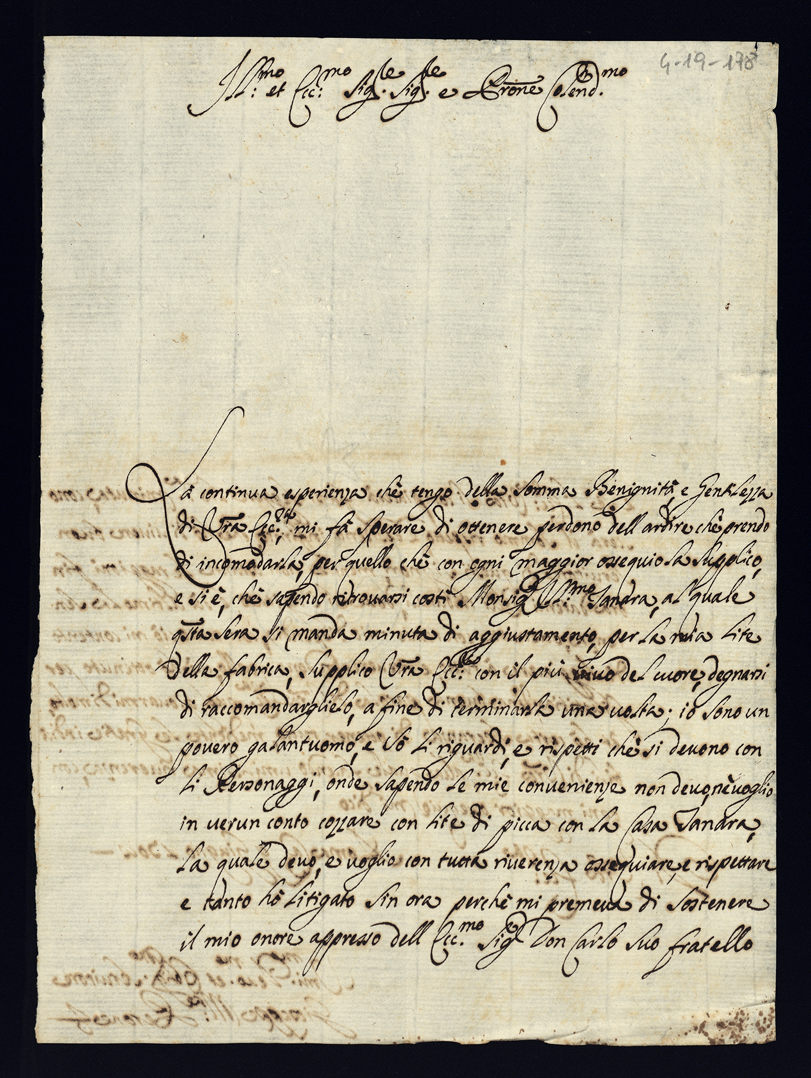 4-19-178
Ill.mo et Ecc.mo Sig.re Sig.re e Prone Colend.mo
La continua esperienza chè tengo della somma Benignità, e Gentilezza
di Vra Ecc.za mi fà sperare di ottenere perdono dell'ardire chè prendo
di incomodarla, per quello chè con ogni maggior ossequio la supplico,
e si è, chè sapendo ritrouarsi costì Monsig.re Ill.mo Zanara, al quale
qsta sera si manda minuta di aggiustamento, per la mia lite
della fabrica, supplico Vra Ecc.za con il più uiuo del cuore, degnarsi
di raccomandarglielo, a fine di terminarla una uolta; io sono un
pouero galantuomo, e sò li riguardi, e rispetti chè si deuono con
li Personaggi, onde sapendo le mie conuenienze non deuo, nè uoglio
in uerun conto cozzare con lite di picca con la Casa Zanara,
la quale deuo, e uoglio con tutta riuerenza ossequiare, e rispettare
e tanto hò litigato sin ora perchè mi premeua di sostenere
il mio onore appresso dell'Ecc.mo Sig.re Don Carlo suo fratello